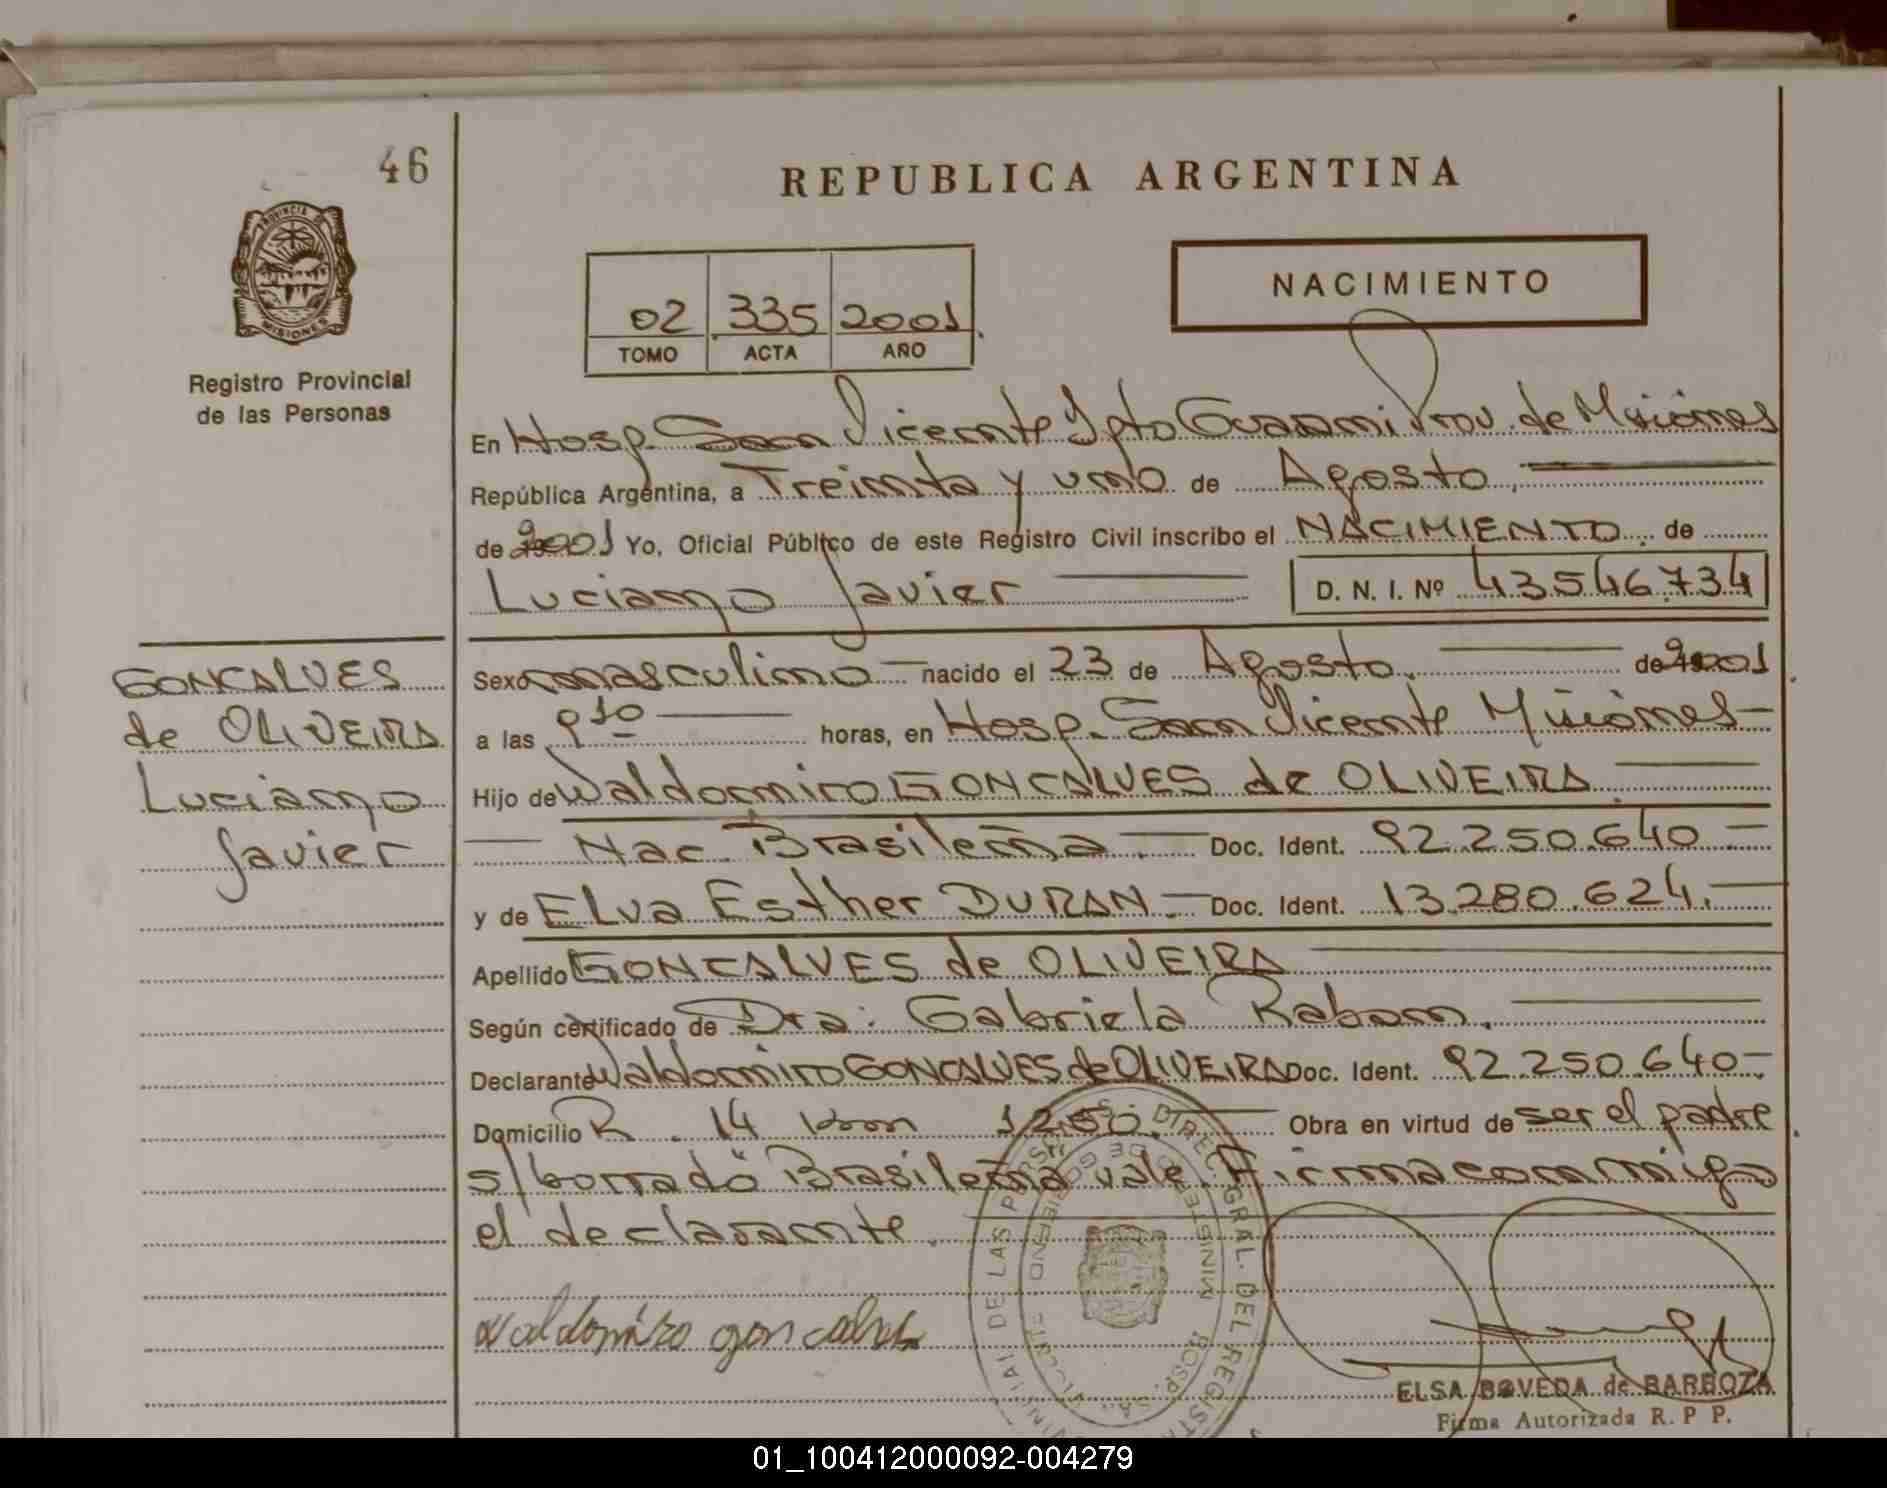 46
REPUBLICA ARGENTINA
PROVINCIA DE
MISIONES
NACIMIENTO
02 335 2001
TOMO ACTA AÑO
Registro Provincial
de las Personas
En Hosp. San Vicente Dpto Guarani Prov. de Misiones
República Argentina, a Treinta y uno de Agosto
de 2001 Yo, Oficial Público de este Registro Civil inscribo el NACIMIENTO de
Luciano Javier D. N. I. Nº 43.546.734
GONCALVES
de OLIVEIRA
Luciano
Javier
Sexo masculino nacido el 23 de Agosto de 2001
a las 9 10 horas, en Hosp. San Vicente Misiones
Hijo de Waldomiro GONCALVES de OLIVEIRA
Nac. Brasileña Doc. Ident. 92.250.640
y de ELva Esther DURAN Doc. Ident. 13.280.624
Apellido GONCALVES de OLIVEIRA
Según certificado de Dra: Gabriela Raban.
Declarante Waldomiro GONCALVES de OLIVEIRA Doc. Ident. 92.250.640
Domicilio R. 14 Km 1250. Obra en virtud de ser el padre
s/borrado "Brasileña" vale. Firma conmigo
el declarante.
Waldomiro goncalves
ELSA BOVEDA de BARBOZA
Firma Autorizada R. P P.
01_100412000092-004279